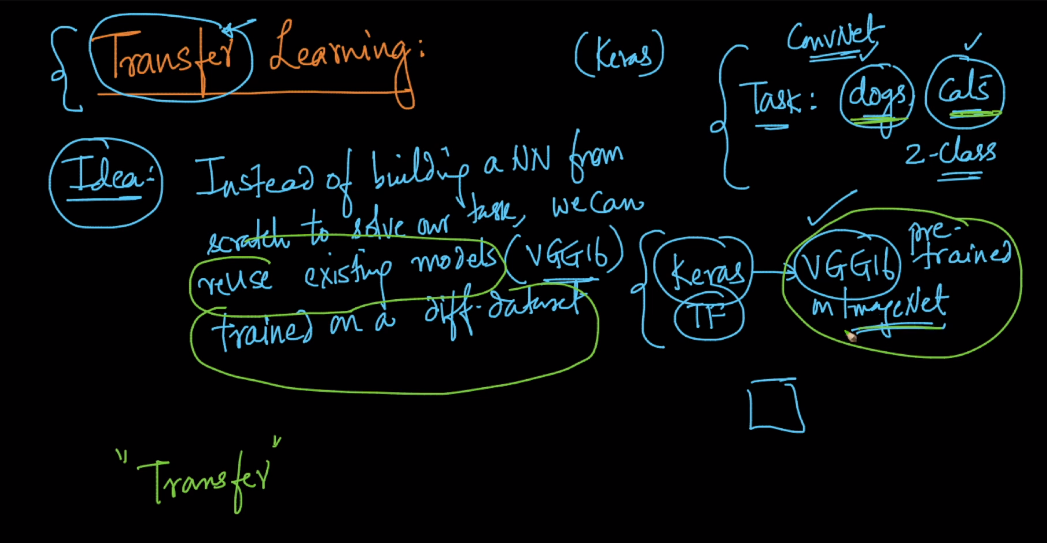 Transfer Learning:
(Keras)
ConvNet
Task: dogs, Cats
2-class
Idea:
Instead of building a NN from
scratch to solve our task, we can
reuse existing models (VGG16)
trained on a diff-dataset
Keras
TF
VGG16 pre-trained
on ImageNet
"Transfer"